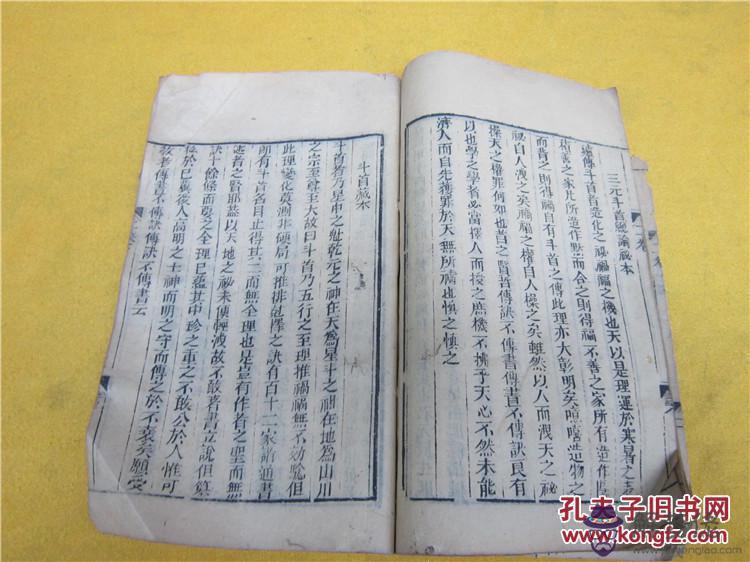 三元斗首總論秘本
權傳斗首者造化之秘禍福之機也天以是理運於寒暑之
積善之家凡所造作默而合之則得福不善之家所有造作
而背之則得禍自有斗首之傳此理亦大彰明矣嘻嘻造物之
秘自人洩之矣禍福之權自人操之矣雖然以人而洩天之秘
操天之權罪何如也昔之賢者傳訣不傳書傳書不傳訣良有
以也學之學者必當擇人而授之庶機不拂乎天心不然未能
濟人而自先獲罪於天無所禱也慎之慎之
斗首藏本
斗首者乃星中之魁乾元之神在天為星斗之神在地為山川
之宗至尊至大故曰斗首乃五行之至理推禍福無不効騐但
此理變化莫測非硬局可推排選擇之訣有百十二家時通書
即有斗首名目止得其二而無全理也是豈有作者之聖而無
述者之賢耶蓋以天地之秘未便輕洩故不敢著書立說但
訣十餘條而斗之全理已蘊其中珍之重之不敢公於人惟可
後人高明之士神而明之守而傳之於不衰矣願受
者傳書不傳訣傳訣不傳書云
孔夫子旧书网
www.kongfz.com